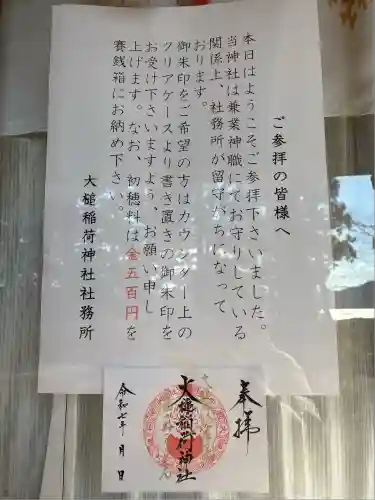 ご参拝の皆様へ
本日はようこそご参拝下さいました。
当神社は兼業神職にてお守りしている
関係上、社務所が留守がちになって
おります。
御朱印をご希望の方はカウンター上の
クリアケースより書き置きの御朱印を
お受け下さいますよう、お願い申し
上げます。なお、初穂料は金五百円を
賽銭箱にお納め下さい。
大槌稲荷神社社務所
奉拝
大槌稲荷神社
令和七年 月 日